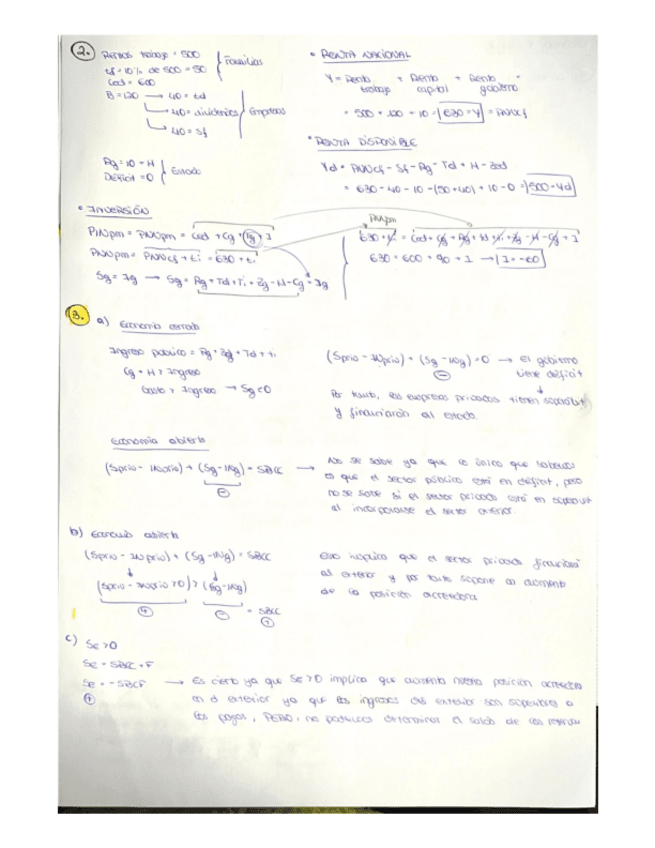 2. Rentas trabajo = 500
td = 10% de 500 = 50
Cad = 600
Familias
B = 120 → 40 = td
→ 40 = dividendos
→ 40 = Sf
Empresas
Rg = 10 = H
Déficit = 0
Estado
• RENTA NACIONAL
Y = Renta trabajo + Renta capital + Renta gobierno =
= 500 + 120 + 10 = 630 = Y = PNNcf
• RENTA DISPONIBLE
Yd = PNNcf - Sf - Rg - Td + H -
= 630 - 40 - 10 - (50 + 40) + 10 - 0 = 500 = Yd
• INVERSIÓN
PINpm = PNNpm = Cad + Cg + Ig + I
PNNpm = PNNcf + ti = 630 + ti
Sg = Ig → Sg = Rg + Td + Ti + - H - Cg = Ig
PNNpm
630 + ti = Cad + + I
630 = 600 + 90 + I → I = -60
3. a) Economía cerrada
Ingreso público = Rg + + Td + ti
Cg + H > Ingreso
Gasto > Ingreso → Sg < 0
(Spriv - INpriv) + (Sg - INg) = 0 → el gobierno
tiene déficit
Por tanto, las empresas privadas tienen superávit
y financiarán al estado.
Economía abierta
(Spriv - INpriv) + (Sg - INg) = SBCC →
No se sabe ya que lo único que sabemos
es que el sector público está en déficit, pero
no se sabe si el sector privado está en superávit
al incorporarse el sector exterior.
b) Economía abierta
(Spriv - INpriv) + (Sg - INg) = SBCC
(Spriv - INpriv > 0) > (Sg - INg)
+ - = SBCC
+
Eso implica que el sector privado financiará
al exterior y por tanto supone un aumento
de la posición acreedora
c) Se > 0
Se = SBCC + F
Se = - SBCF → Es cierto ya que Se > 0 implica que aumenta nuestra posición acreedora
+
en el exterior ya que los ingresos del exterior son superiores a
los pagos, PERO, no podemos determinar el saldo de las